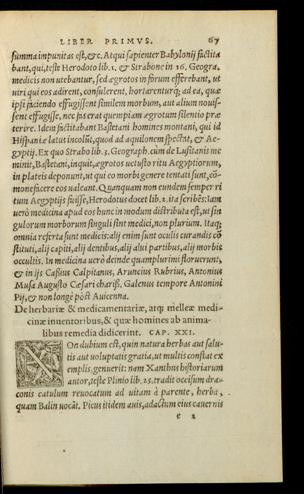 LIBER PRIMVS. 67
summa impunitas est, &c. Atqui sapienter Babylonij factita
bant, qui, teste Herodoto lib. 1. & Strabone in 16. Geogra.
medicis non utebantur, sed ægrotos in forum efferebant, ut
uiri qui eos adirent, consulerent, hortarenturq; ad ea, quæ
ipsi faciendo effugissent similem morbum, aut alium nouis-
sent effugisse, nec fas erat quempiam ægrotum silentio præ
terire. Idem factitabant Bastetani homines montani, qui id
Hispaniæ latus incolũt, quod ad aquilonem spectat, & Ae-
gyptij. Ex quo Strabo lib. 3. Geograph. cùm de Lusitanis me
minit, Bastetani, inquit, ægrotos uetusto ritu Aegyptiorum,
in plateis deponunt, ut qui eo morbi genere tentati sunt, cõ-
monefacere eos ualeant. Quanquam non eundem semper ri
tum Aegyptijs fuisse, Herodotus docet lib. 2. ita scribẽs: Iam
uerò medicina apud eos hunc in modum distributa est, ut sin
gulorum morborum singuli sint medici, non plurium. Itaq;
omnia referta sunt medicis: alij enim sunt oculis curandis cõ
stituti, alij capiti, alij dentibus, alij alui partibus, alij morbis
occultis. In medicina uerò deinde quamplurimi floruerunt,
& in ijs Cassius Calpitanus, Aruncius Rubrius, Antonius
Musa Augusto Cæsari chariss. Galenus tempore Antonini
Pij, & non longè pòst Auicenna.
De herbariæ & medicamentariæ, atq; melleæ medi-
cinæ inuentoribus, & quæ homines ab anima-
libus remedia didicerint. CAP. XXI.
NOn dubium est, quin natura herbas aut salu-
tis aut uoluptatis gratia, ut multis constat ex
emplis, genuerit: nam Xanthus historiarum
autor, teste Plinio lib. 25. tradit occisum dra-
conis catulum reuocatum ad uitam à parente, herba,
quam Balin uocãt. Picus itidem auis, adactum eius cauernis
e 2